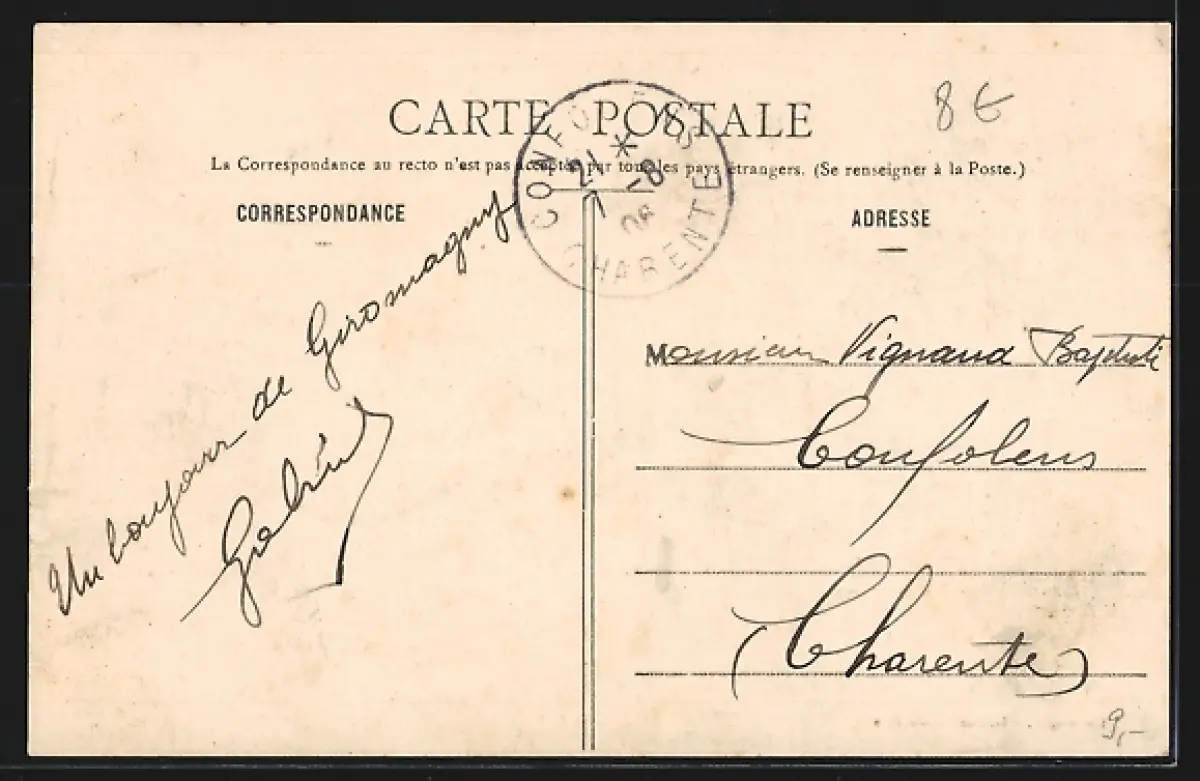 8 €
CARTE POSTALE
La Correspondance au recto n'est pas acceptée par tous les pays étrangers. (Se renseigner à la Poste.)
CONFOLENS
21 *
7 -8
08
CHARENTE
CORRESPONDANCE
ADRESSE
Un bonjour de Giromagny
Monsieur Vignaud Baptiste
Confolens
(Charente)
9,-